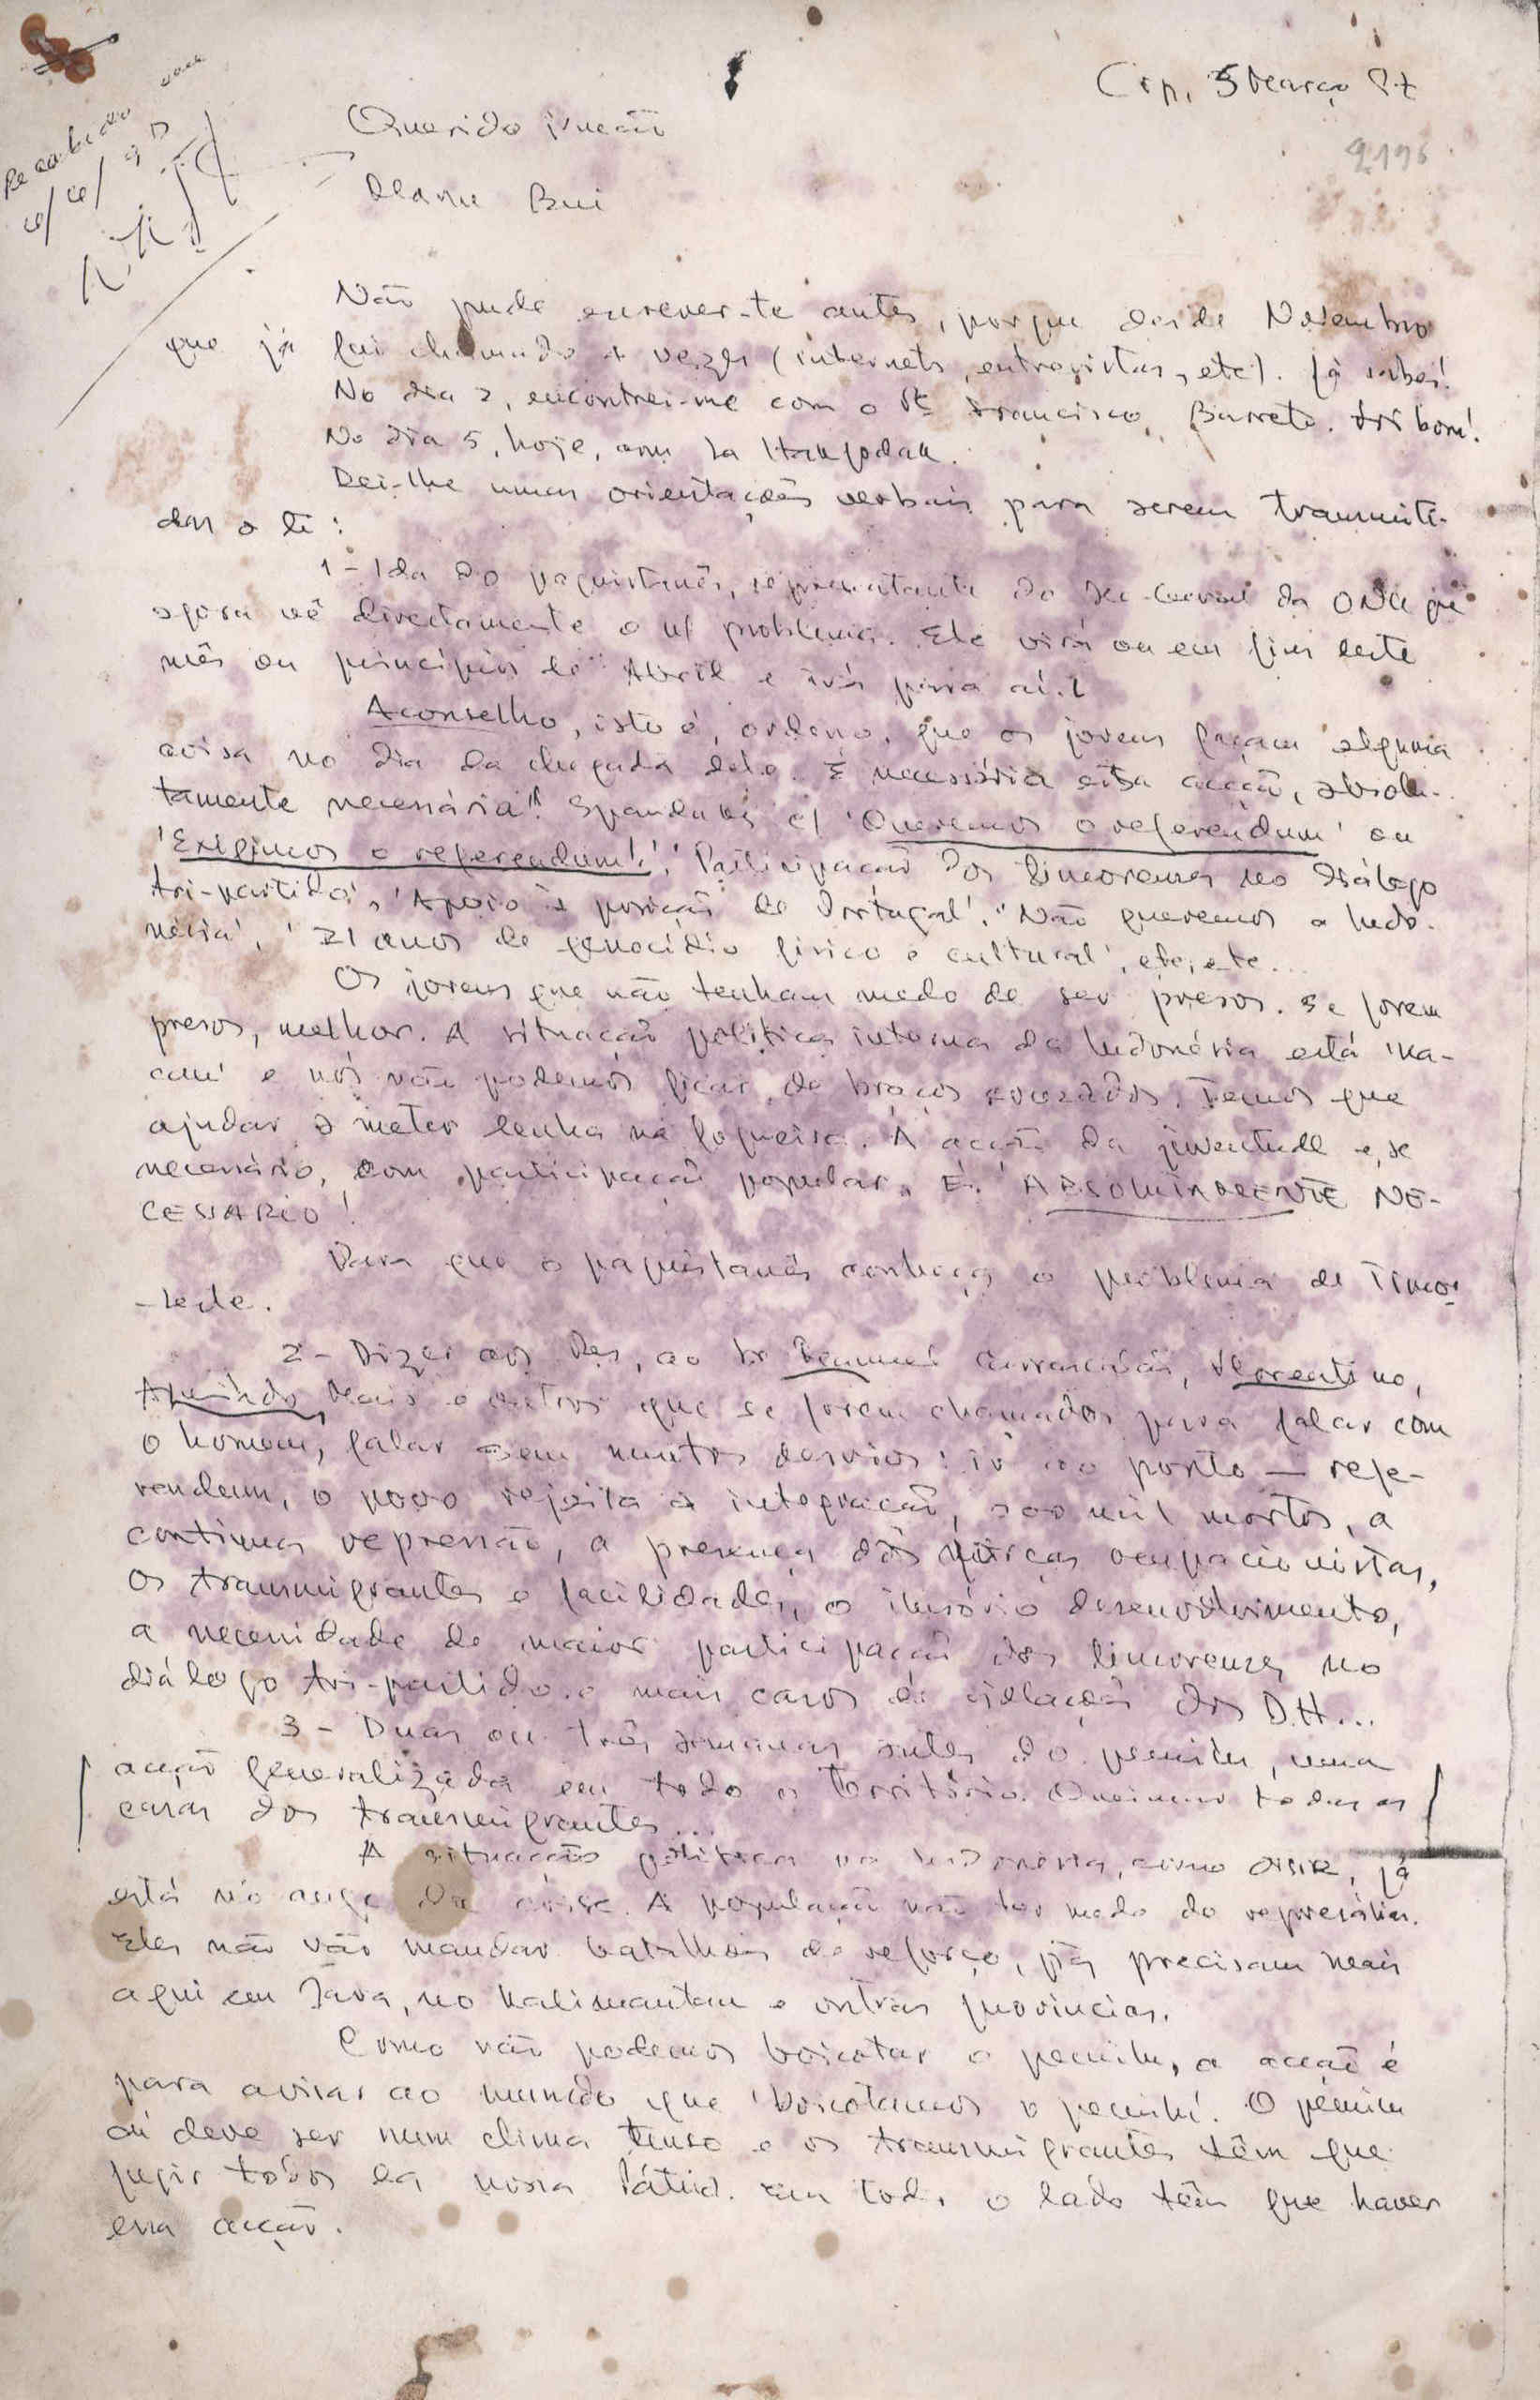 Cip, 5 Março 97
2196
Recebido
Querido irmão
Não pude escrever-te antes, porque desde Novembro
que já fui chamado 4 vezes (internets, entrevistas, etc). Já sabes!
No dia 2, encontrei-me com o Francisco Barreto. bom!
No dia 5, hoje, com
Dei-lhe umas orientações verbais para serem transmiti-
das a ti:
1 - Ida do paquistanês, representante do Sec-Geral da ONU que
agora vê directamente o n/ problema. Ele virá ou em fins deste
mês ou princípios de Abril e irá para aí.
Aconselho, isto é, ordeno, que os jovens façam alguma
coisa no dia da chegada dele. É necessária essa acção, absolu-
tamente necessária! Spanduks c/ 'Queremos o referendum' ou
'Exigimos o referendum!', 'Participação dos timorenses no diálogo
tri-partido', 'Apoio à posição de Portugal', 'Não queremos a Indo-
nésia', '21 anos de genocídio físico e cultural', etc, etc...
Os jovens que não tenham medo de ser presos. Se forem
presos, melhor. A situação política interna da Indonésia está 'ka-
cau' e nós não podemos ficar de braços cruzados. Temos que
ajudar a meter lenha na fogueira. A acção da juventude e, se
necessário, com participação popular, É ABSOLUTAMENTE NE-
CESSÁRIO!
Para que o paquistanês conheça o problema de Timor
-Leste.
2 - Dizer aos Pes, ao Sr Carrascalão, Florentino,
Armindo Maia e outros que se forem chamados para falar com
o homem, falar sem muitos desvios: ir ao ponto — refe-
rendum, o povo rejeita a integração, 200 mil mortos, a
contínua repressão, a presença das forças ocupacionistas,
os transmigrantes e facilidades, o ilusório desenvolvimento,
a necessidade de maior participação dos timorenses no
diálogo tri-partido e mais casos de violação dos D.H...
3 - Duas ou três semanas antes do pemilu, uma
acção generalizada em todo o Território. Queimar todas as
casas dos transmigrantes...
A situação política na Indonésia, como disse, já
está no auge da crise. A população não ter medo de represálias.
Eles não vão mandar batalhões de reforço, já precisam mais
aqui em Java, no Kalimantan e outras províncias.
Como não podemos boicotar o pemilu, a acção é
para avisar ao mundo que 'boicotamos o pemilu'. O pemilu
aí deve ser num clima tenso e os transmigrantes têm que
fugir todos da nossa Pátria. Em todo o lado têm que haver
essa acção.